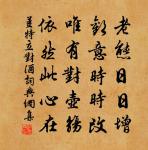 老態日日增
歡意時時改
唯有對壺觴
依然此心在
姜特立對酒詞典網集